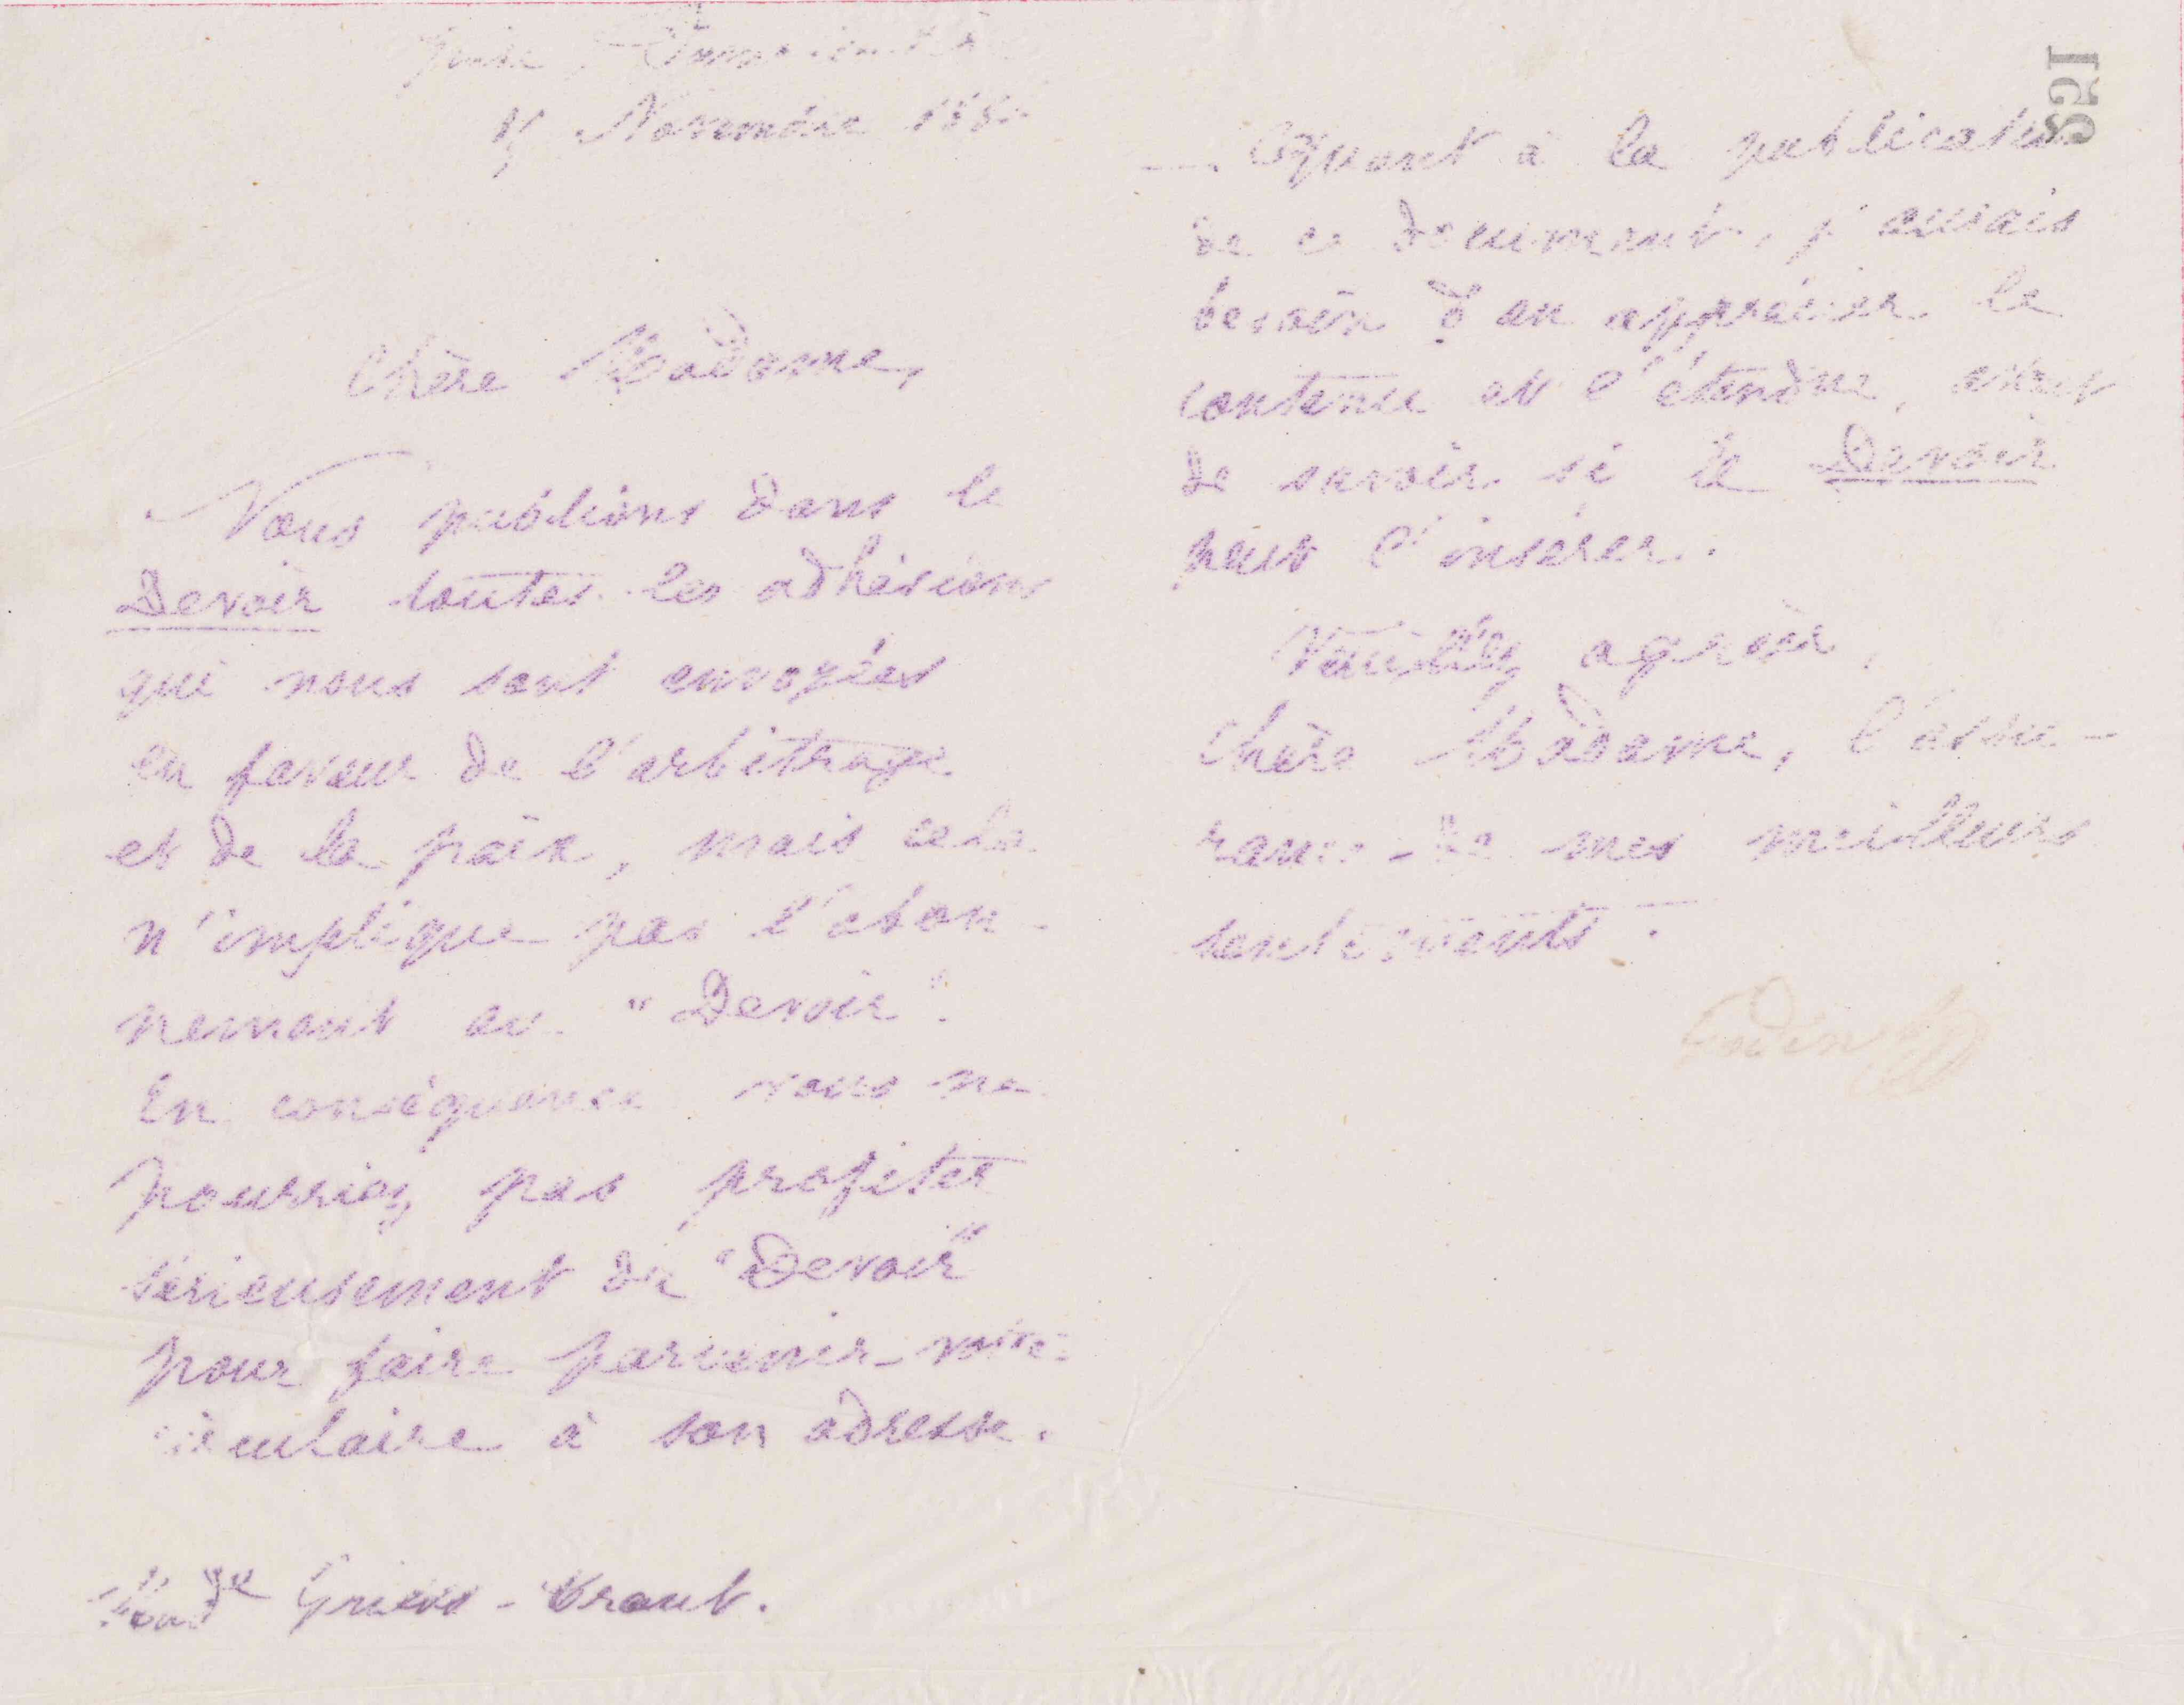 Guise
Novembre 188
Chère Madame,
Nous publions dans le
Devoir toutes les adhésions
qui nous sont envoyées
en faveur de l'arbitrage
et de la paix, mais cela
n'implique pas l'abon-
nement au "Devoir".
En conséquence vous ne
pourriez pas profiter
sérieusement du "Devoir"
pour faire parvenir votre
circulaire à son adresse.
Mad.e Griess-Traut.
521
— Quant à la publication
de ce document, j'aurais
besoin d'en apprécier le
contenu et l'étendue, avant
de savoir si le Devoir
peut l'insérer.
Veuillez agréer,
Chère Madame, l'assu-
rance de mes meilleurs
sentiments.
Godin